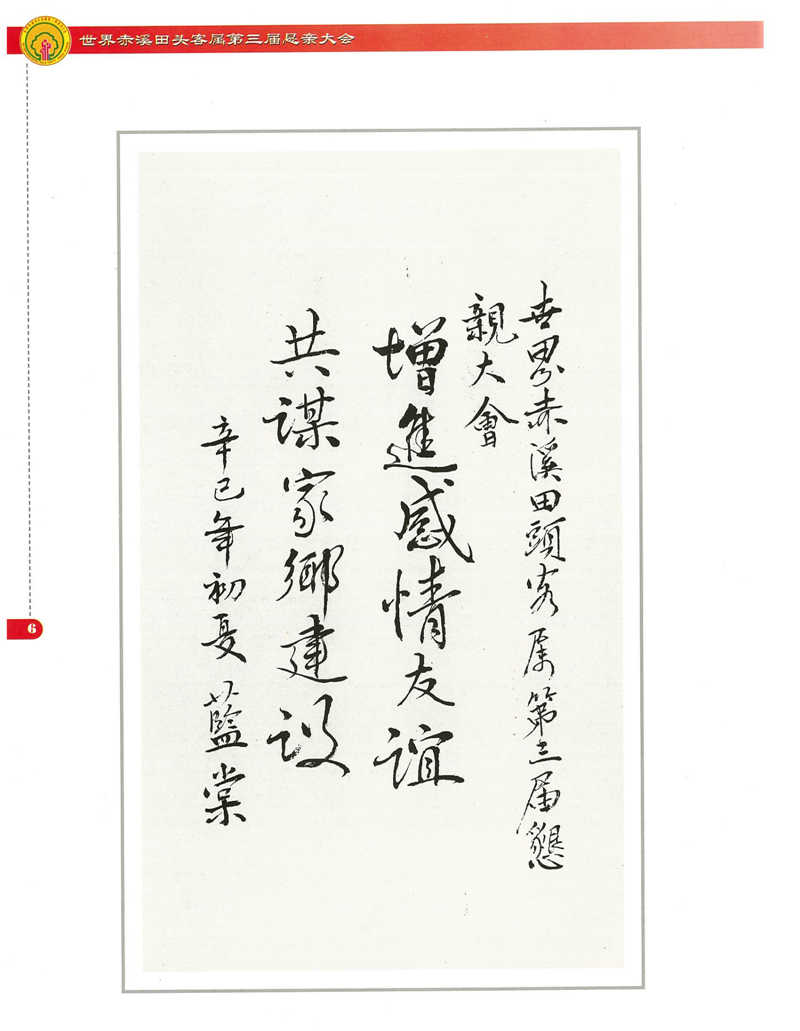 世界赤溪田头客属第三届恳亲大会
世界赤溪田頭客属第三届懇
親大會
增進感情友誼
共謀家鄉建設
辛巳年初夏 藍棠
6